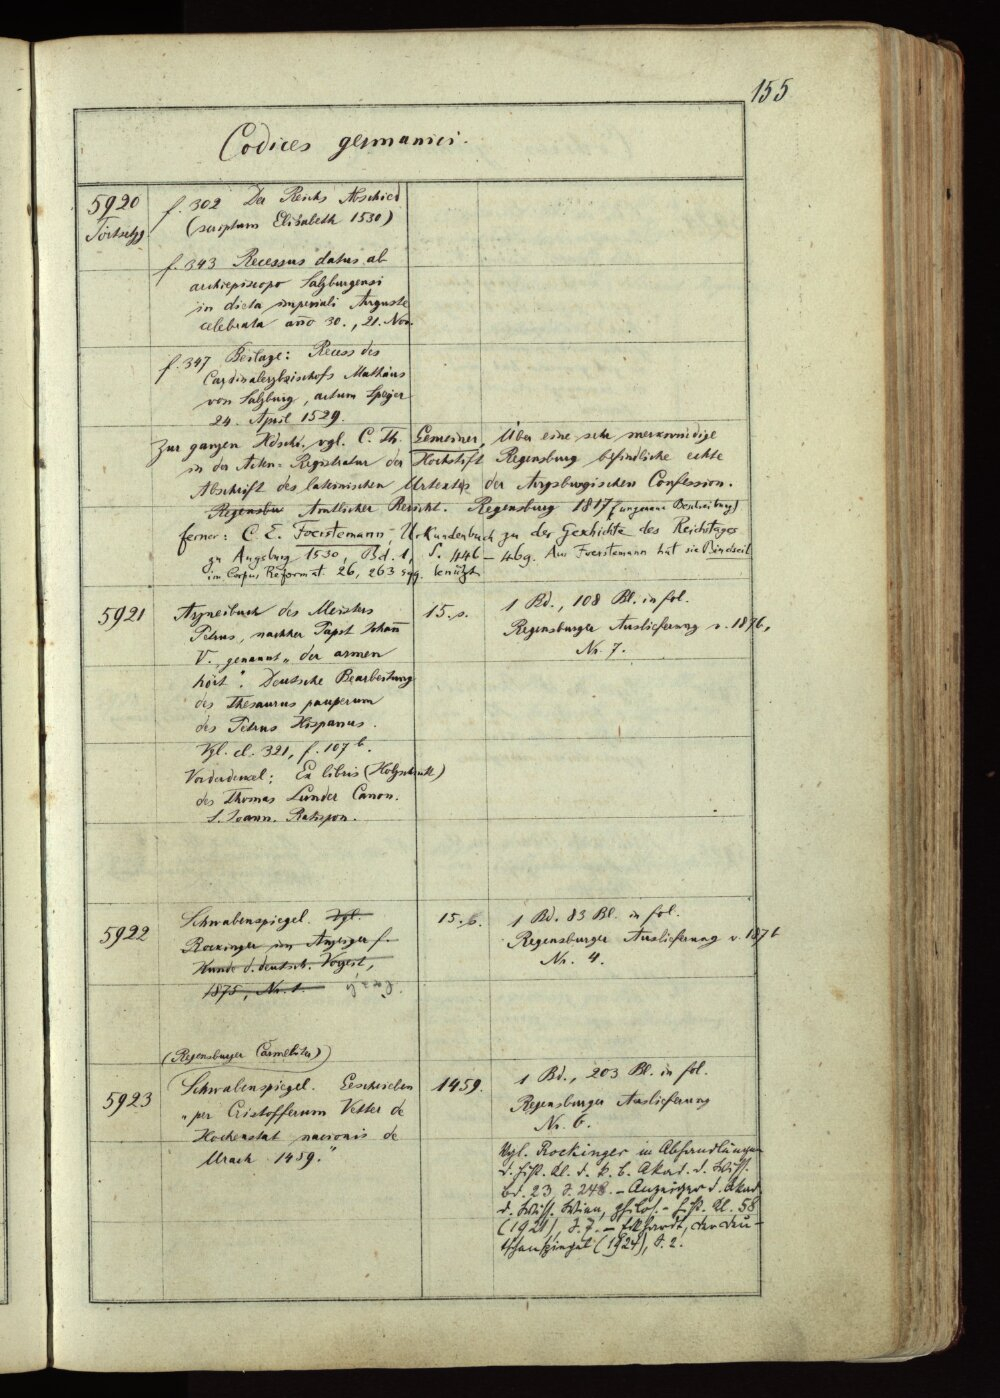 155
Codices germanici.
5920
f. 302 Der Reichs Abschied
(scriptum Elisabeth 1530)
f. 343 Recessus datus ab
archiepiscopo Salzburgensi
in dieta imperiali Auguste
celebrata año 30., 21. Nov.
f. 347 Beilage: Recess des
Cardinalerzbischofs Mathäus
von Salzburg, actum Speyer
24. April 1529.
Zur ganzen Hdschr. vgl. C. Th. Gemeiner, Über eine sehr merkwürdige
in der Acten-Registratur der Hochstift Regensburg befindliche echte
Abschrift des lateinischen Urtextes der Augsburgischen Confession.
Regensbu Amtlicher Bericht. Regensburg 1817 (ungenaue Beschreibung)
ferner: C. E. Foerstemann, Urkundenbuch zu der Geschichte des Reichstages
zu Augsburg 1530, Bd. 1, S. 446-469. Aus Foerstemann hat sie Bindseil
im Corpus Reformat. 26, 263 sqq. benützt
5921
Arzneibuch des Meisters
Petrus, nachher Papst Johañ
V. genannt „der armen
hort“. Deutsche Bearbeitung
des Thesaurus pauperum
des Petrus Hispanus.
Vgl. cl. 321, f. 107 b.
Vorderdeckel: Ex libris (Holzschnitt)
des Thomas Lunder Canon.
S. Joann. Ratispon.
15. s.
1 Bd., 108 Bl. in fol.
Regensburger Auslieferung v. 1876,
Nr. 7.
5922
Schwabenspiegel. Vgl.
Rockinger im Anzeiger f.
Kunde d. deutsch. Vorzeit,
1875, Nr. 1.
15. s.
1 Bd. 83 Bl. in fol.
Regensburger Auslieferung v. 1876
Nr. 4.
(Regensburger Carmeliter)
5923
Schwabenspiegel. Geschrieben
„per Cristofferum Vetter de
Hochenstat nacionis de
Urach 1459.“
1459.
1 Bd., 203 Bl. in fol.
Regensburger Auslieferung
Nr. 6.
Vgl. Rockinger in Abhandlungen
d. hist. Kl. d. k. b. Akad. d. Wiss.
Bd. 23, S. 248. – Anzeiger d. Akad.
d. Wiss. Wien, philos.-hist. Kl. 58
(1921), S. 7. – Eckhardt, der Deu-
tschenspiegel (1924), S. 2.